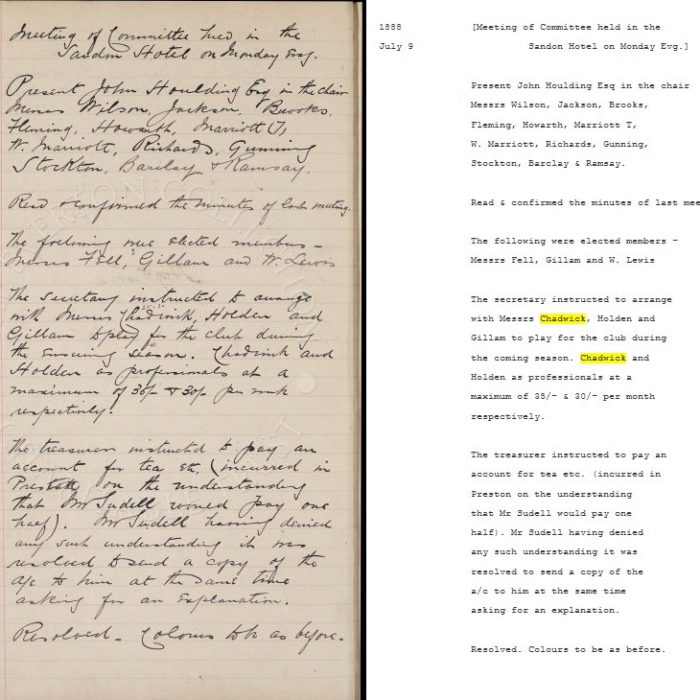 Meeting of Committee held in the
Sandon Hotel on Monday Evg.
Present John Houlding Esq in the chair
Messrs Wilson, Jackson, Brooks,
Fleming, Howarth, Marriott (T),
W. Marriott, Richards, Gunning
Stockton, Barclay & Ramsay.
Read & confirmed the minutes of last meeting.
The following were elected members –
Messrs Fell, Gillam and W. Lewis
The Secretary instructed to arrange
with Messrs Chadwick, Holden and
Gillam to play for the club during
the ensuing season. Chadwick and
Holden as professionals at a
maximum of 35/- & 30/- per week
respectively.
The treasurer instructed to pay an
account for tea etc. (incurred in
Preston on the understanding
that Mr Sudell would pay one
half). Mr Sudell having denied
any such understanding it was
resolved to send a copy of the
a/c to him at the same time
asking for an explanation.
Resolved – Colours to be as before.
1888 [Meeting of Committee held in the
July 9 Sandon Hotel on Monday Evg.]
Present John Houlding Esq in the chair
Messrs Wilson, Jackson, Brooks,
Fleming, Howarth, Marriott T,
W. Marriott, Richards, Gunning,
Stockton, Barclay & Ramsay.
Read & confirmed the minutes of last mee
The following were elected members –
Messrs Fell, Gillam and W. Lewis
The secretary instructed to arrange
with Messrs Chadwick, Holden and
Gillam to play for the club during
the coming season. Chadwick and
Holden as professionals at a
maximum of 35/- & 30/- per month
respectively.
The treasurer instructed to pay an
account for tea etc. (incurred in
Preston on the understanding
that Mr Sudell would pay one
half). Mr Sudell having denied
any such understanding it was
resolved to send a copy of the
a/c to him at the same time
asking for an explanation.
Resolved. Colours to be as before.